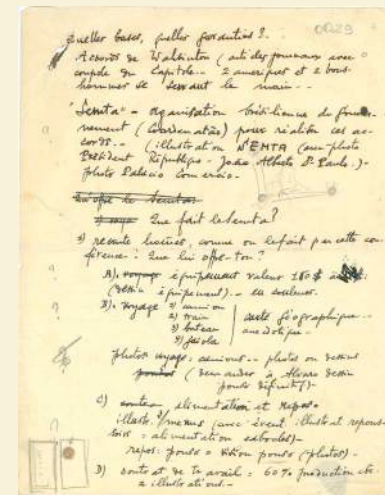 0029
Quelles bases, quelles garanties ?.
Accords de Washington (article journaux avec
coupole du Capitole.. 2 ameriques et 2 bons-
hommes se serrant la main..-
"Semta" - organisation brésilienne du gouver-
nement (Coordenação) pour réaliter ces ac-
cords.. (illustration SEMTA (avec photo
Président République - João Alberto Dr Paulo.)-
photo Palacio Comercio.-
Que fait le Semta ?
1) recrute hommes, comme on le fait par cette con-
férence : Que lui offre-t-on ?
A). équipement valeur 180 $
(dessin équipement).- en couleurs.
B). Voyage 1) camion
2) train
3) bateau
4) gaiola
carte géographique..
anecdotique.-
photos voyage : camions.. photos ou dessins
(demander à Alvaro dessin
C) alimentation et repos.
illustr. menus (avec
: alimentation
repos : pouso = vision pouso (photos).-
D) contrat de travail : 60% production etc.
2 illustrations.-